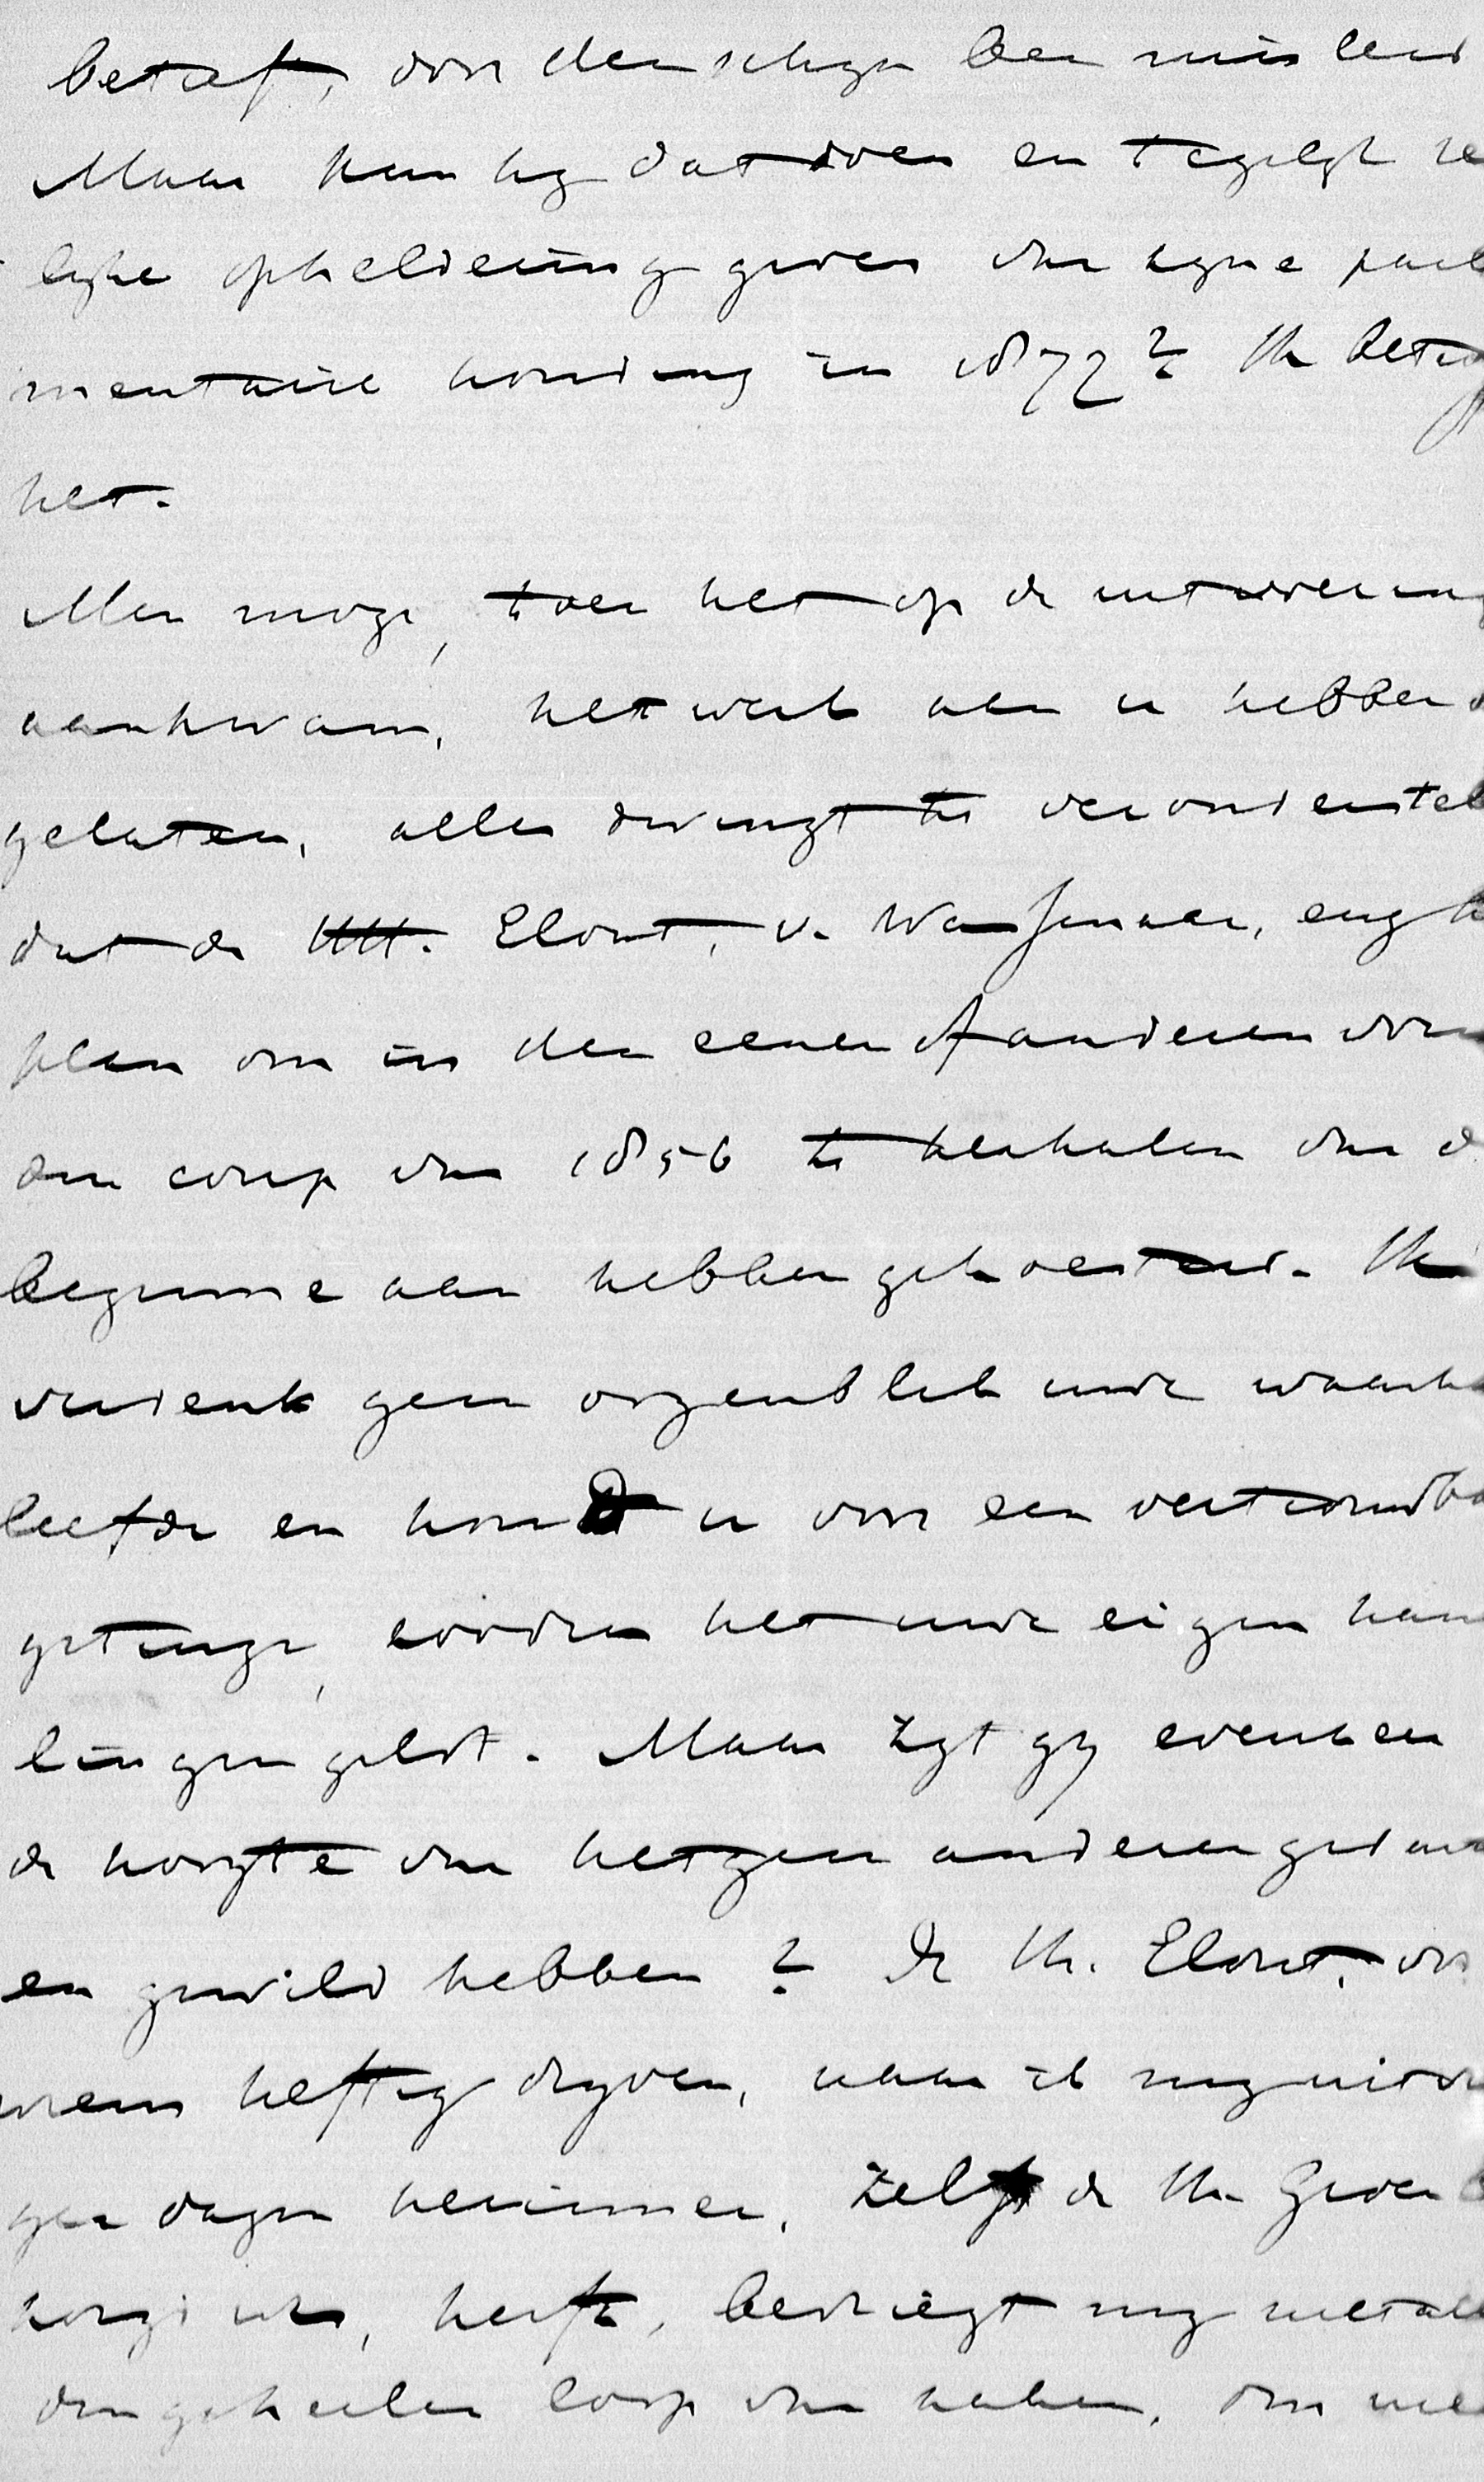 betreft, door den schijn ben misleid
Maar kan hij dat doen en tegelijk re
lijke opheldering geven van zijne parl
mentaire houding in 1872? Ik betwij
het.
Men moge, toen het op de uitvoering
aankwam, het werk aan u hebben
gelaten, alles dwingt te veronderstel
dat de HH. Elout, v. Wassenaer, enz. h
plan om in den eenen of anderen vorm
den coup van 1856 te herhalen van d
beginne aan hebben gekoesterd. Ik
verdenk geen oogenblik uwe waarh
liefde en houd u voor een vertrouwba
getuige, zoodra het uwe eigen han
lingen geldt. Maar zijt gij evenzeer
de hoogte van hetgeen anderen gedaan
en gewild hebben? De Hr. Elout, vo
wiens heftig drijven, naar ik mij uit vr
ger dagen herinner, zelfs de Hr. Groen
hoogi was, heeft, bedriegt mij niet al
den geheelen loop van zaken, door